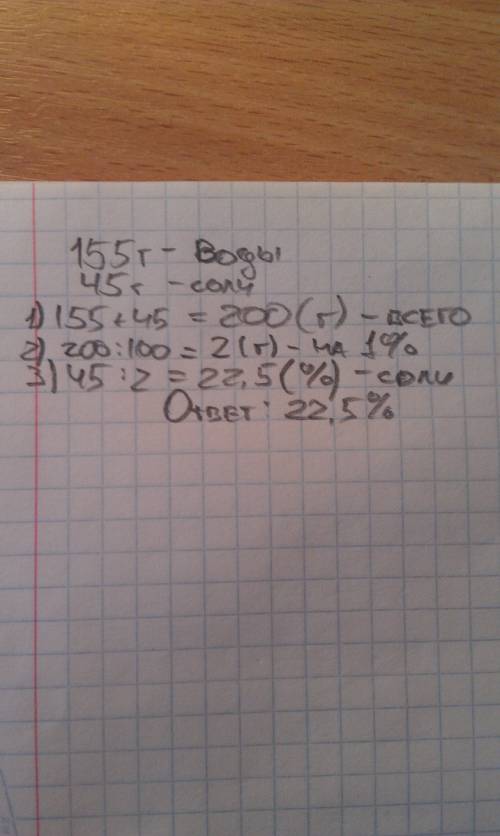 155г - Воды
45г - соли
1) 155 + 45 = 200 (г) - ВСЕГО
2) 200 : 100 = 2 (г) - на 1%
3) 45 : 2 = 22,5 (%) - соли
Ответ: 22,5%